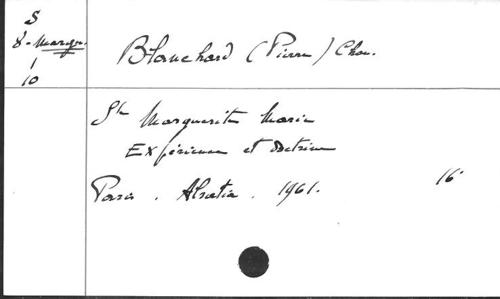 S
8 - Margu.
1
10
Blanchard (Pierre) Chan.
Ste Marguerite Marie
Expérience et doctrine
Paris . Alsatia . 1961. 16°